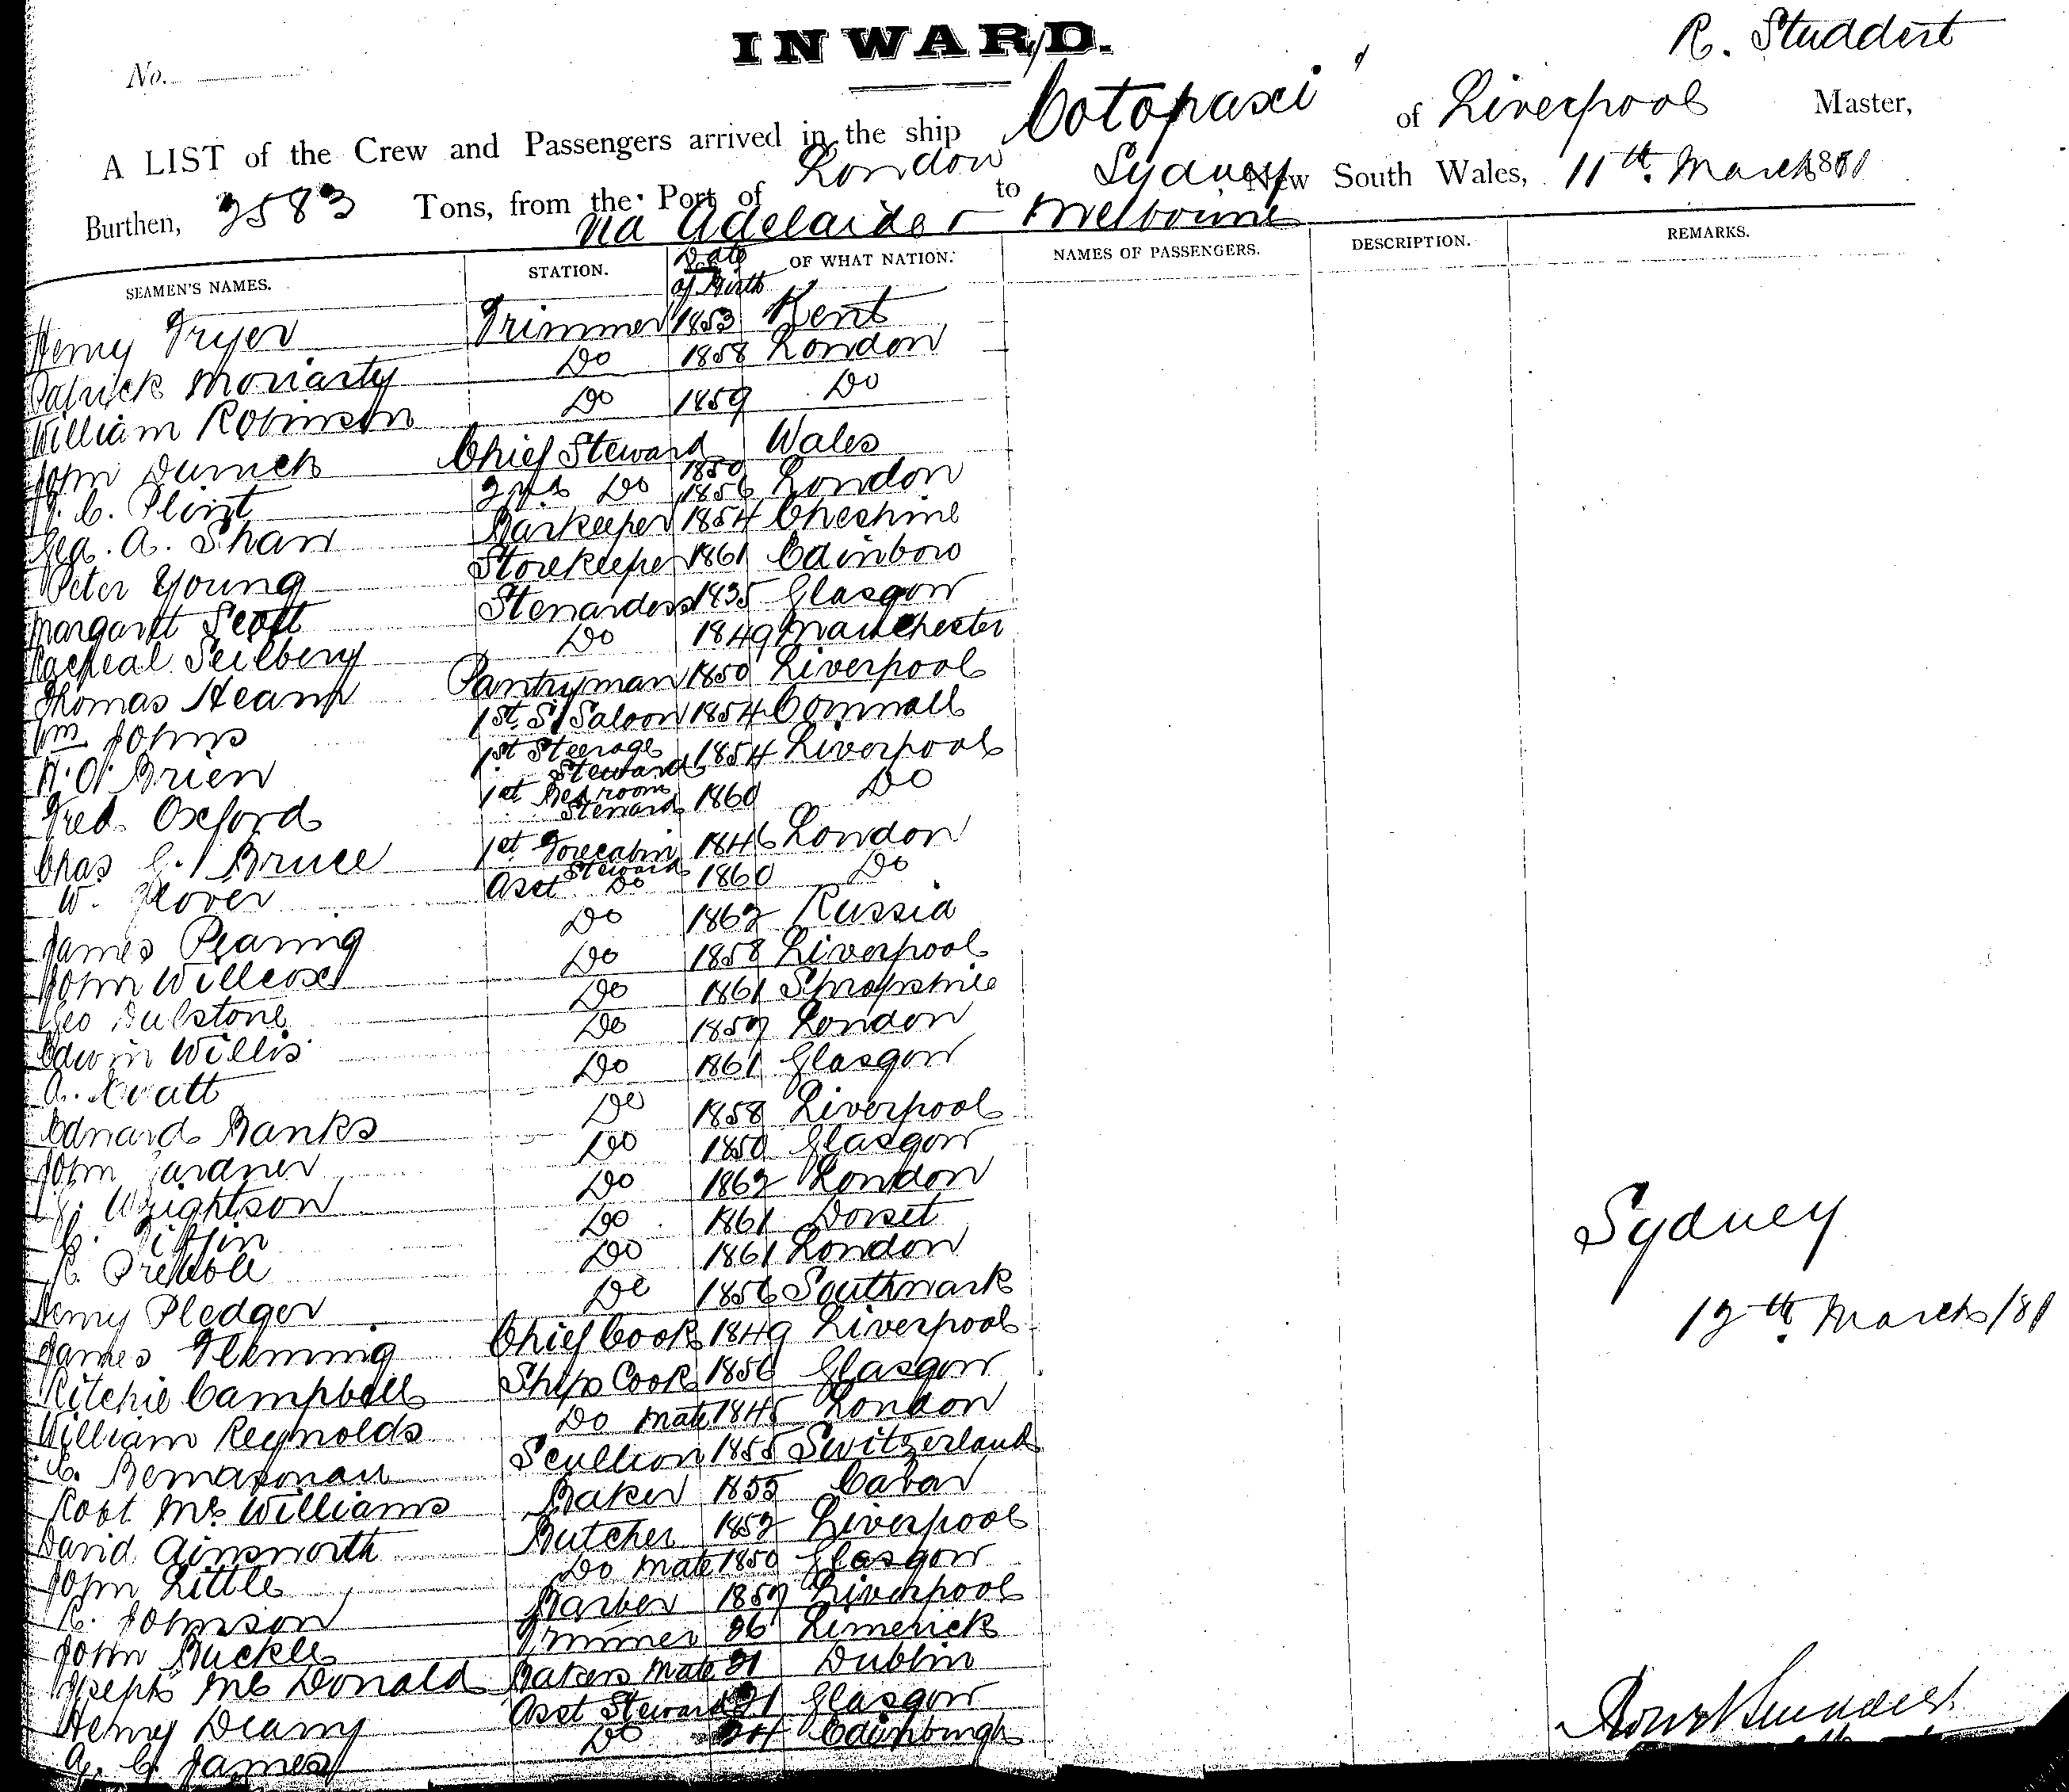 INWARD.
No.
R. Studdert
A LIST of the Crew and Passengers arrived in the ship "Cotopaxi" of Liverpool Master,
Burthen, 2583 Tons, from the Port of London to Sydney New South Wales, 11th March 1881
via Adelaide & Melbourne
SEAMEN'S NAMES. STATION. Date of Birth OF WHAT NATION. NAMES OF PASSENGERS. DESCRIPTION. REMARKS.
Henry Fryer Trimmer 1853 Kent
Patrick Moriarty Do 1858 London
William Robinson Do 1859 Do
John Chief Steward 1850 Wales
C. Flint 2nd Do 1856 London
Geo. A. Shaw Barkeeper 1854 Cheshire
Peter Young Storekeeper 1861 Edinboro
Margaret Scott Stewardess 1835 Glasgow
Do 1849 Manchester
Thomas Pantryman 1850 Liverpool
Wm Johns 1st S/Saloon 1854 Cornwall
O'Brien 1st Steerage Steward 1854 Liverpool
Fred. Oxford 1st Bedroom Steward 1860 Do
Chas Bruce 1st Forecabin Steward 1846 London
W. Glover Asst Do 1860 Do
James Do 1862 Russia
John Willcox Do 1858 Liverpool
Geo Do 1861 Shropshire
Edwin Willis Do 1859 London
Do 1861 Glasgow
Edward Banks Do 1858 Liverpool
John Gardner Do 1850 Glasgow
Wrightson Do 1862 London
Do 1861 Dorset
Do 1861 London
Henry Pledger Do 1856 Southwark
James Fleming Chief Cook 1849 Liverpool
Ritchie Campbell Ships Cook 1856 Glasgow
William Reynolds Do mate 1845 London
Scullion 1855 Switzerland
Robt McWilliams Baker 1855 Cavan
David Ainsworth Butcher 1852 Liverpool
John Little Do mate 1850 Glasgow
R. Johnson Barber 1859 Liverpool
John Buckle Trimmer 26 Limerick
Joseph McDonald Bakers mate 21 Dublin
Henry Asst Steward 21 Glasgow
James Do 24 Edinburgh
Sydney
12th March/81